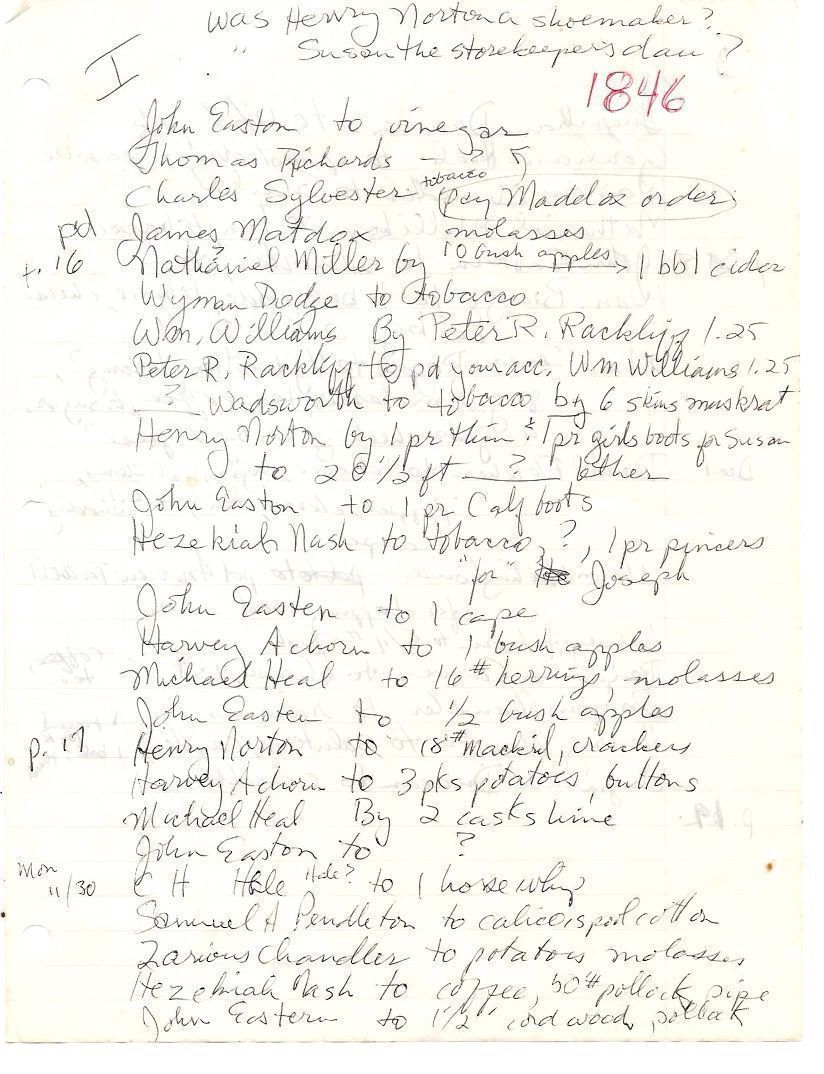 was Henry Norton a shoemaker?
" Susan the storekeeper's dau?
I
1846
John Easton to vinegar
Thomas Richards — ?
Charles Sylvester tobacco pay Maddox order
pd James Matdox molasses
p. 16 Nathaniel Miller by 10 bush apples > 1 bbl cider
?
Wyman Dodge to tobacco
Wm. Williams By Peter R. Rackliff 1.25
Peter R. Rackliff to pd your acc. Wm Williams 1.25
? Wadsworth to tobacco by 6 skins muskrat
Henry Norton by 1 pr thin & 1 pr girls boots for Susan
to 20 1/2 ft ? lether
John Easton to 1 pr Calf boots
Hezekiah Nash to tobacco, ?, 1 pr pincers
"for" Joseph
John Easten to 1 cape
Harvey Achorn to 1 bush apples
Michael Heal to 16# herrings, molasses
John Easten to 1/2 bush apples
p. 17 Henry Norton to 18# mackril, crackers
Harvey Achorn to 3 pks potatoes, buttons
Michael Heal By 2 casks lime
John Easton to ?
Mon 11/30 C H Hale Hole? to 1 horse whip
Samuel A Pendleton to calico, spool cotton
Zarious Chandler to potatoes molasses
Hezekiah Nash to coffee, 50# pollock, pipe
John Eastern to 1 1/2 cord wood, pollock